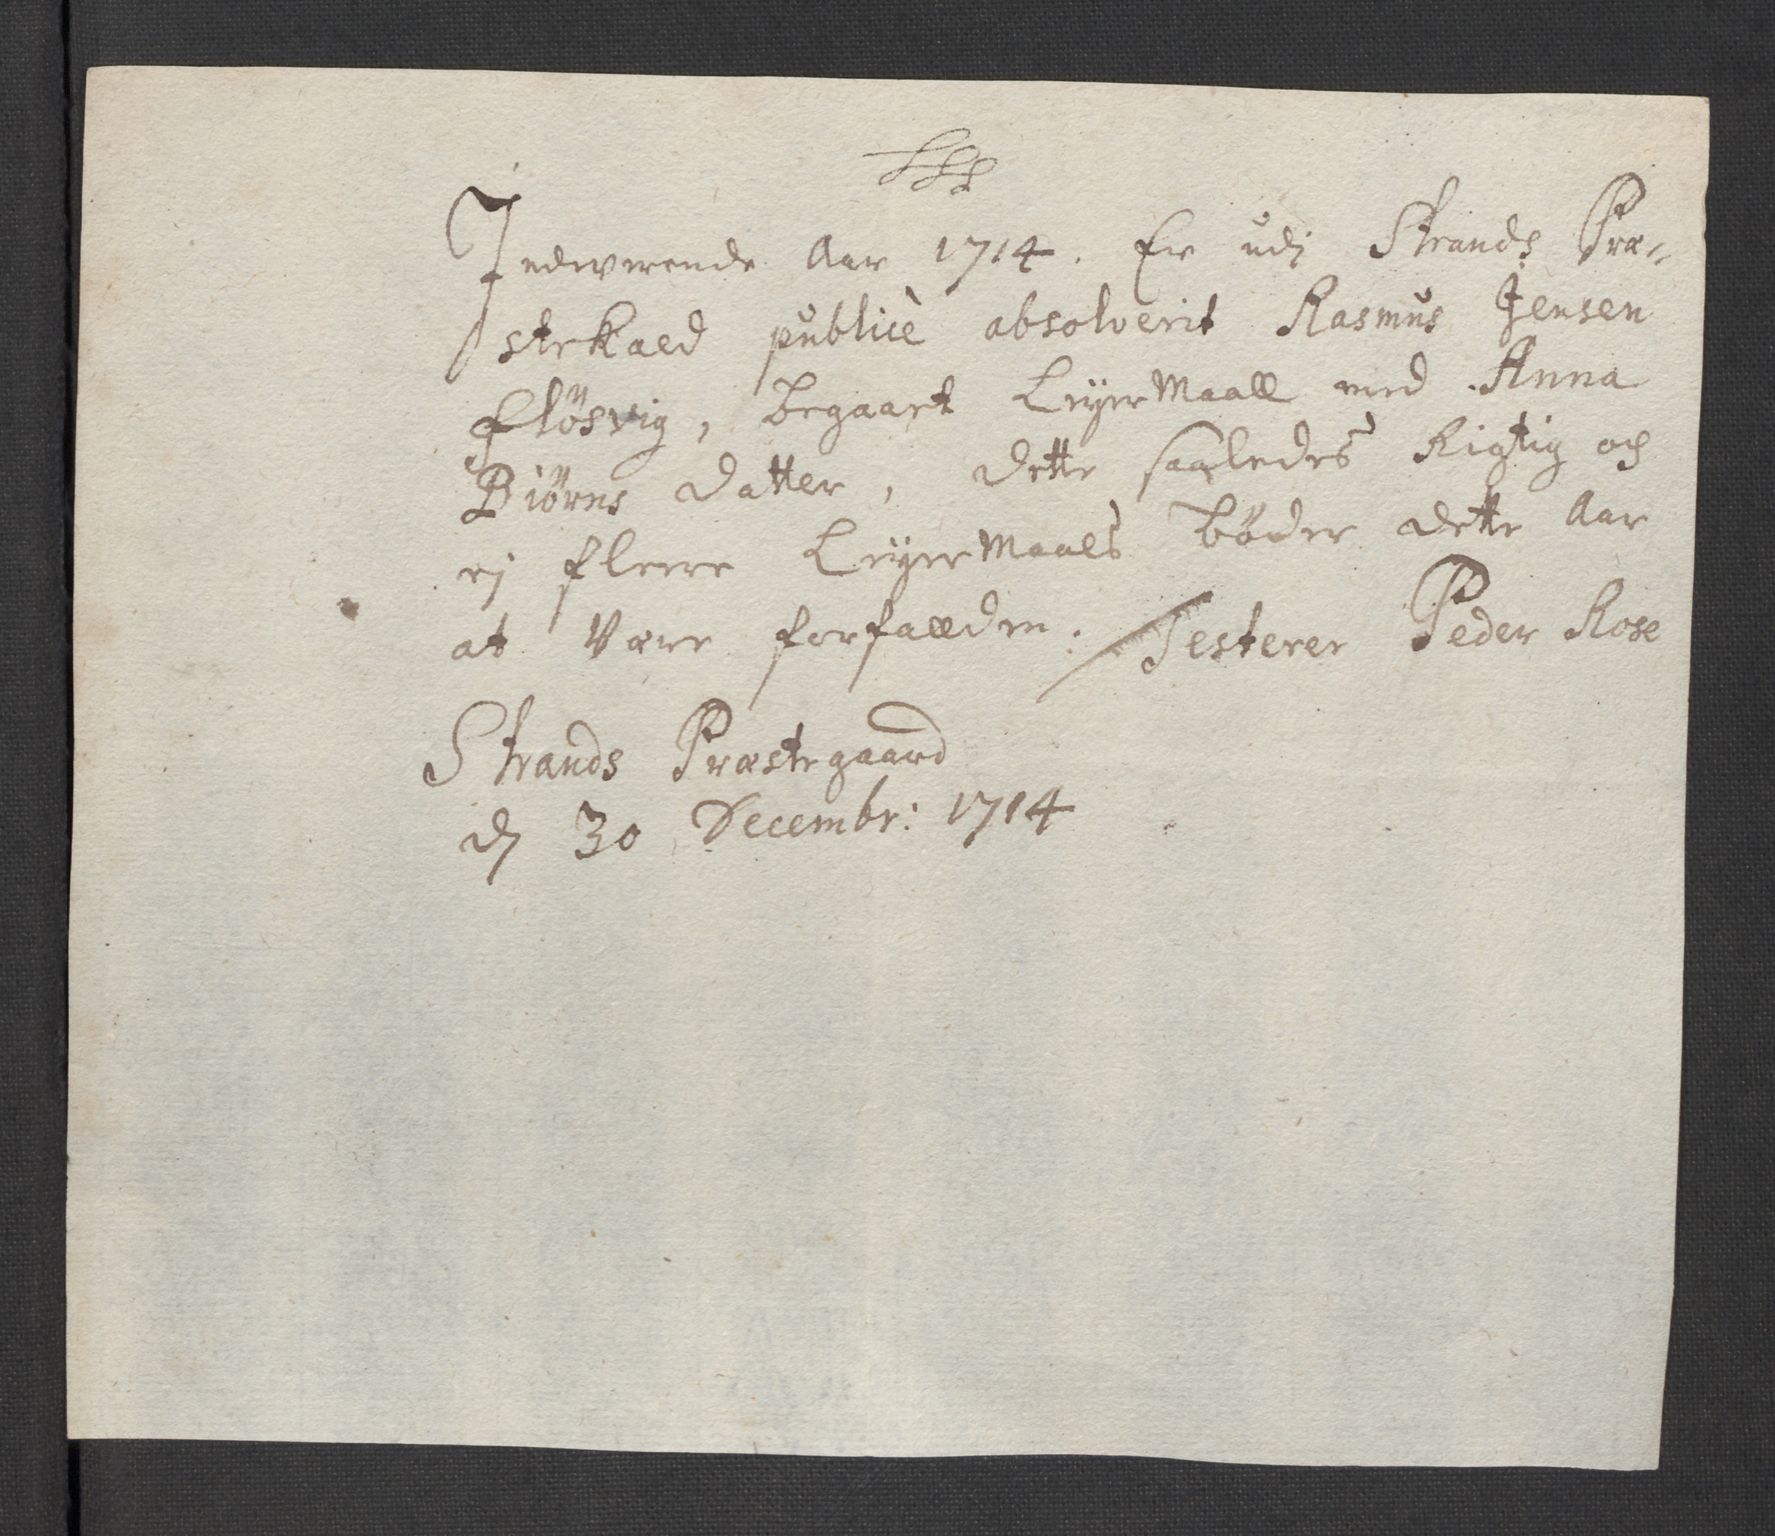 Indwerende Aar 1714. Er udj Strands Præ-
stekald publicè absolverit Rasmus Jensen
Fløsvig, begaaet LeyerMaall med Anna
Biørns datter, dette saaledes Rigtig och
ej fleere LeyerMaals bøder dette Aar
at være forfallden. Testerer Peder Rose
Strands Præstegaard
dj 30 Decembr: 1714